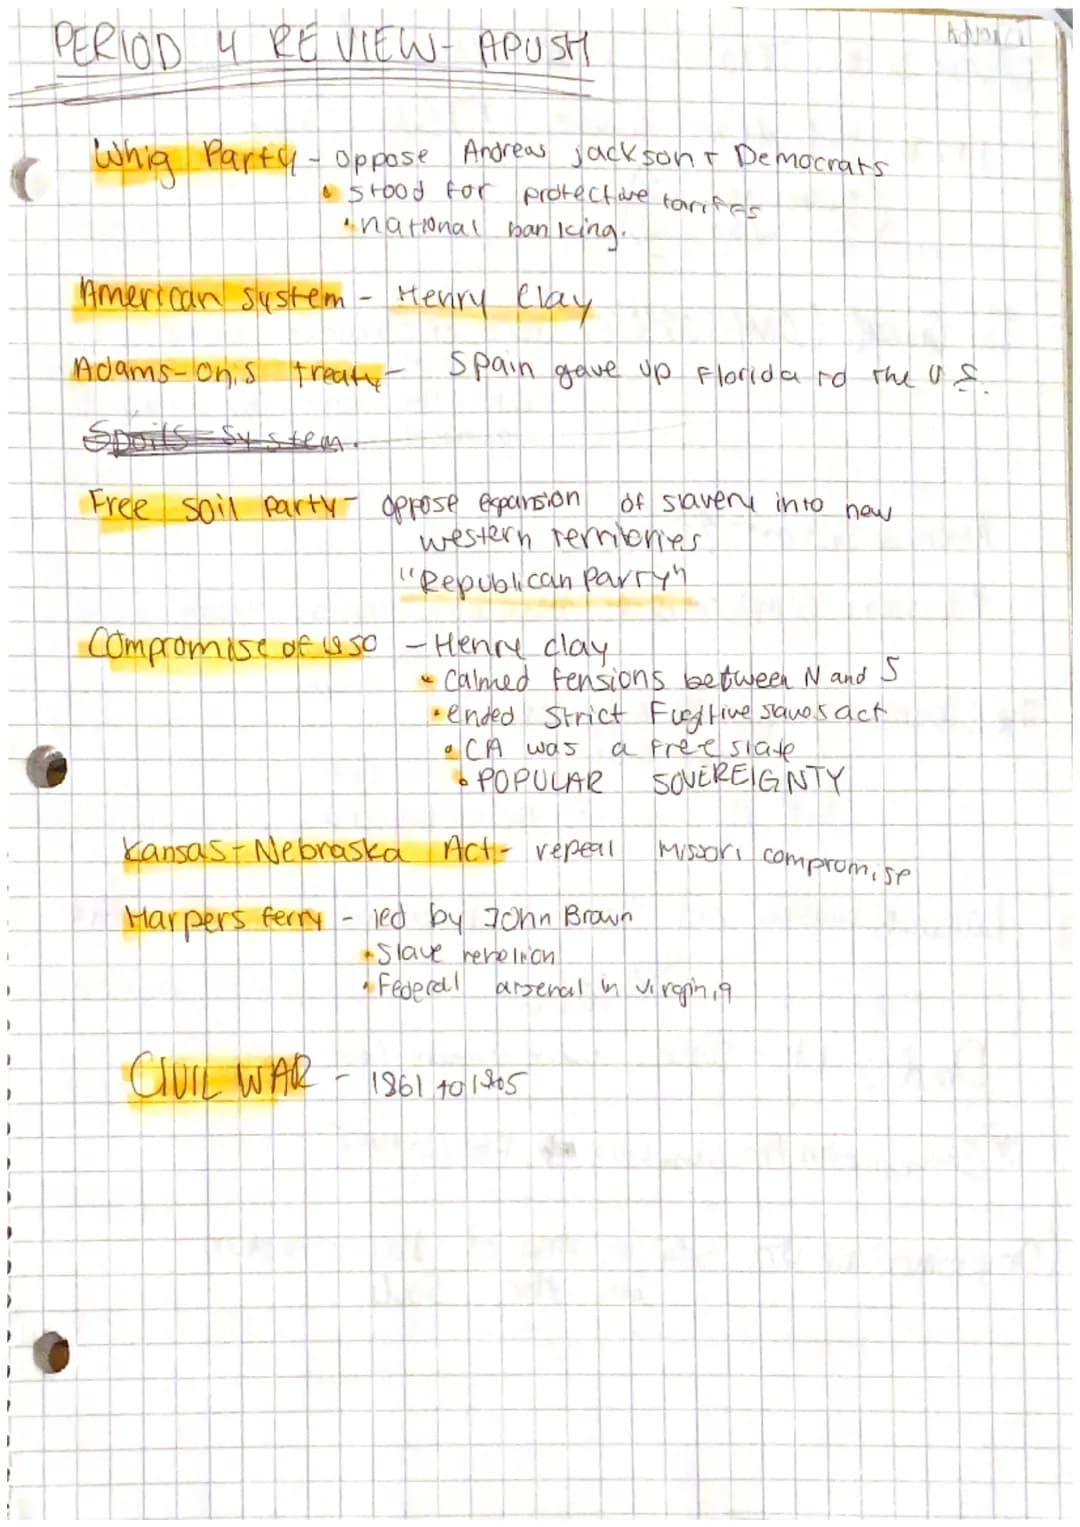 PERIOD 4 REVIEW- APUSH
Whig Party - oppose Andreas Jackson + Democrats
• stood for protective tariffs
• national banking.
American system - Henry Clay
Adams-Onis treaty - Spain gave up Florida to the U.S.
Spoils System.
Free soil party - oppose expansion of slavery into new
western territories
"Republican Party"
Compromise of 1850 - Henry clay
• Calmed tensions between N and S
• ended Strict Fugitive slaves act
• CA was a free state
• POPULAR SOVEREIGNTY
Kansas-Nebraska Act - repeal Missori compromise
Harpers ferry - led by John Brown
• Slave rebelion
• Federal arsenal in Virginia
CIVIL WAR - 1861 to 1865